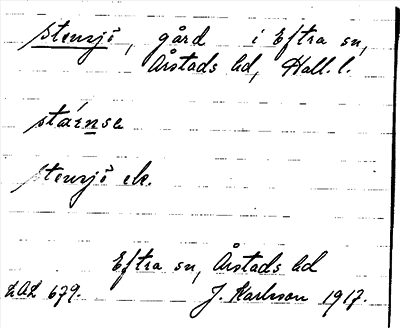 Stensjö, gård i Eftra sn,
Årstads hd, Hall. l.
stǽnsa
Stensjö ek.
Eftra sn, Årstads hd
LAL 679. J. Karlsson 1917.